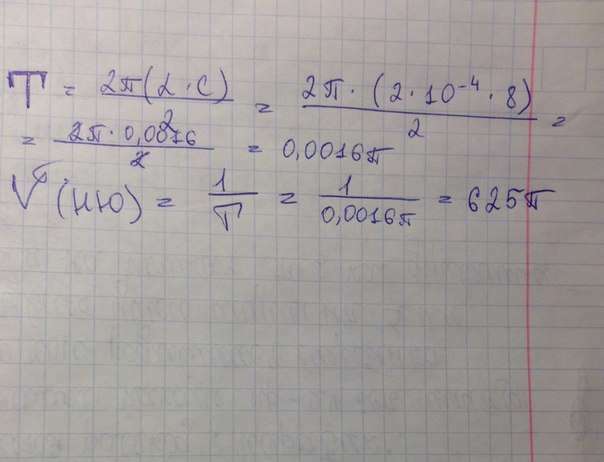 T = 2π(L·C)/2 = 2π·(2·10⁻⁴·8)/2 =
= 2π·0,0016/2 = 0,0016π
V (ню) = 1/T = 1/0,0016π = 625π